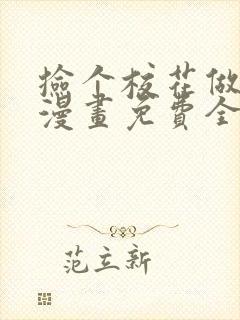 捡个校花做
漫画免费全
范立新